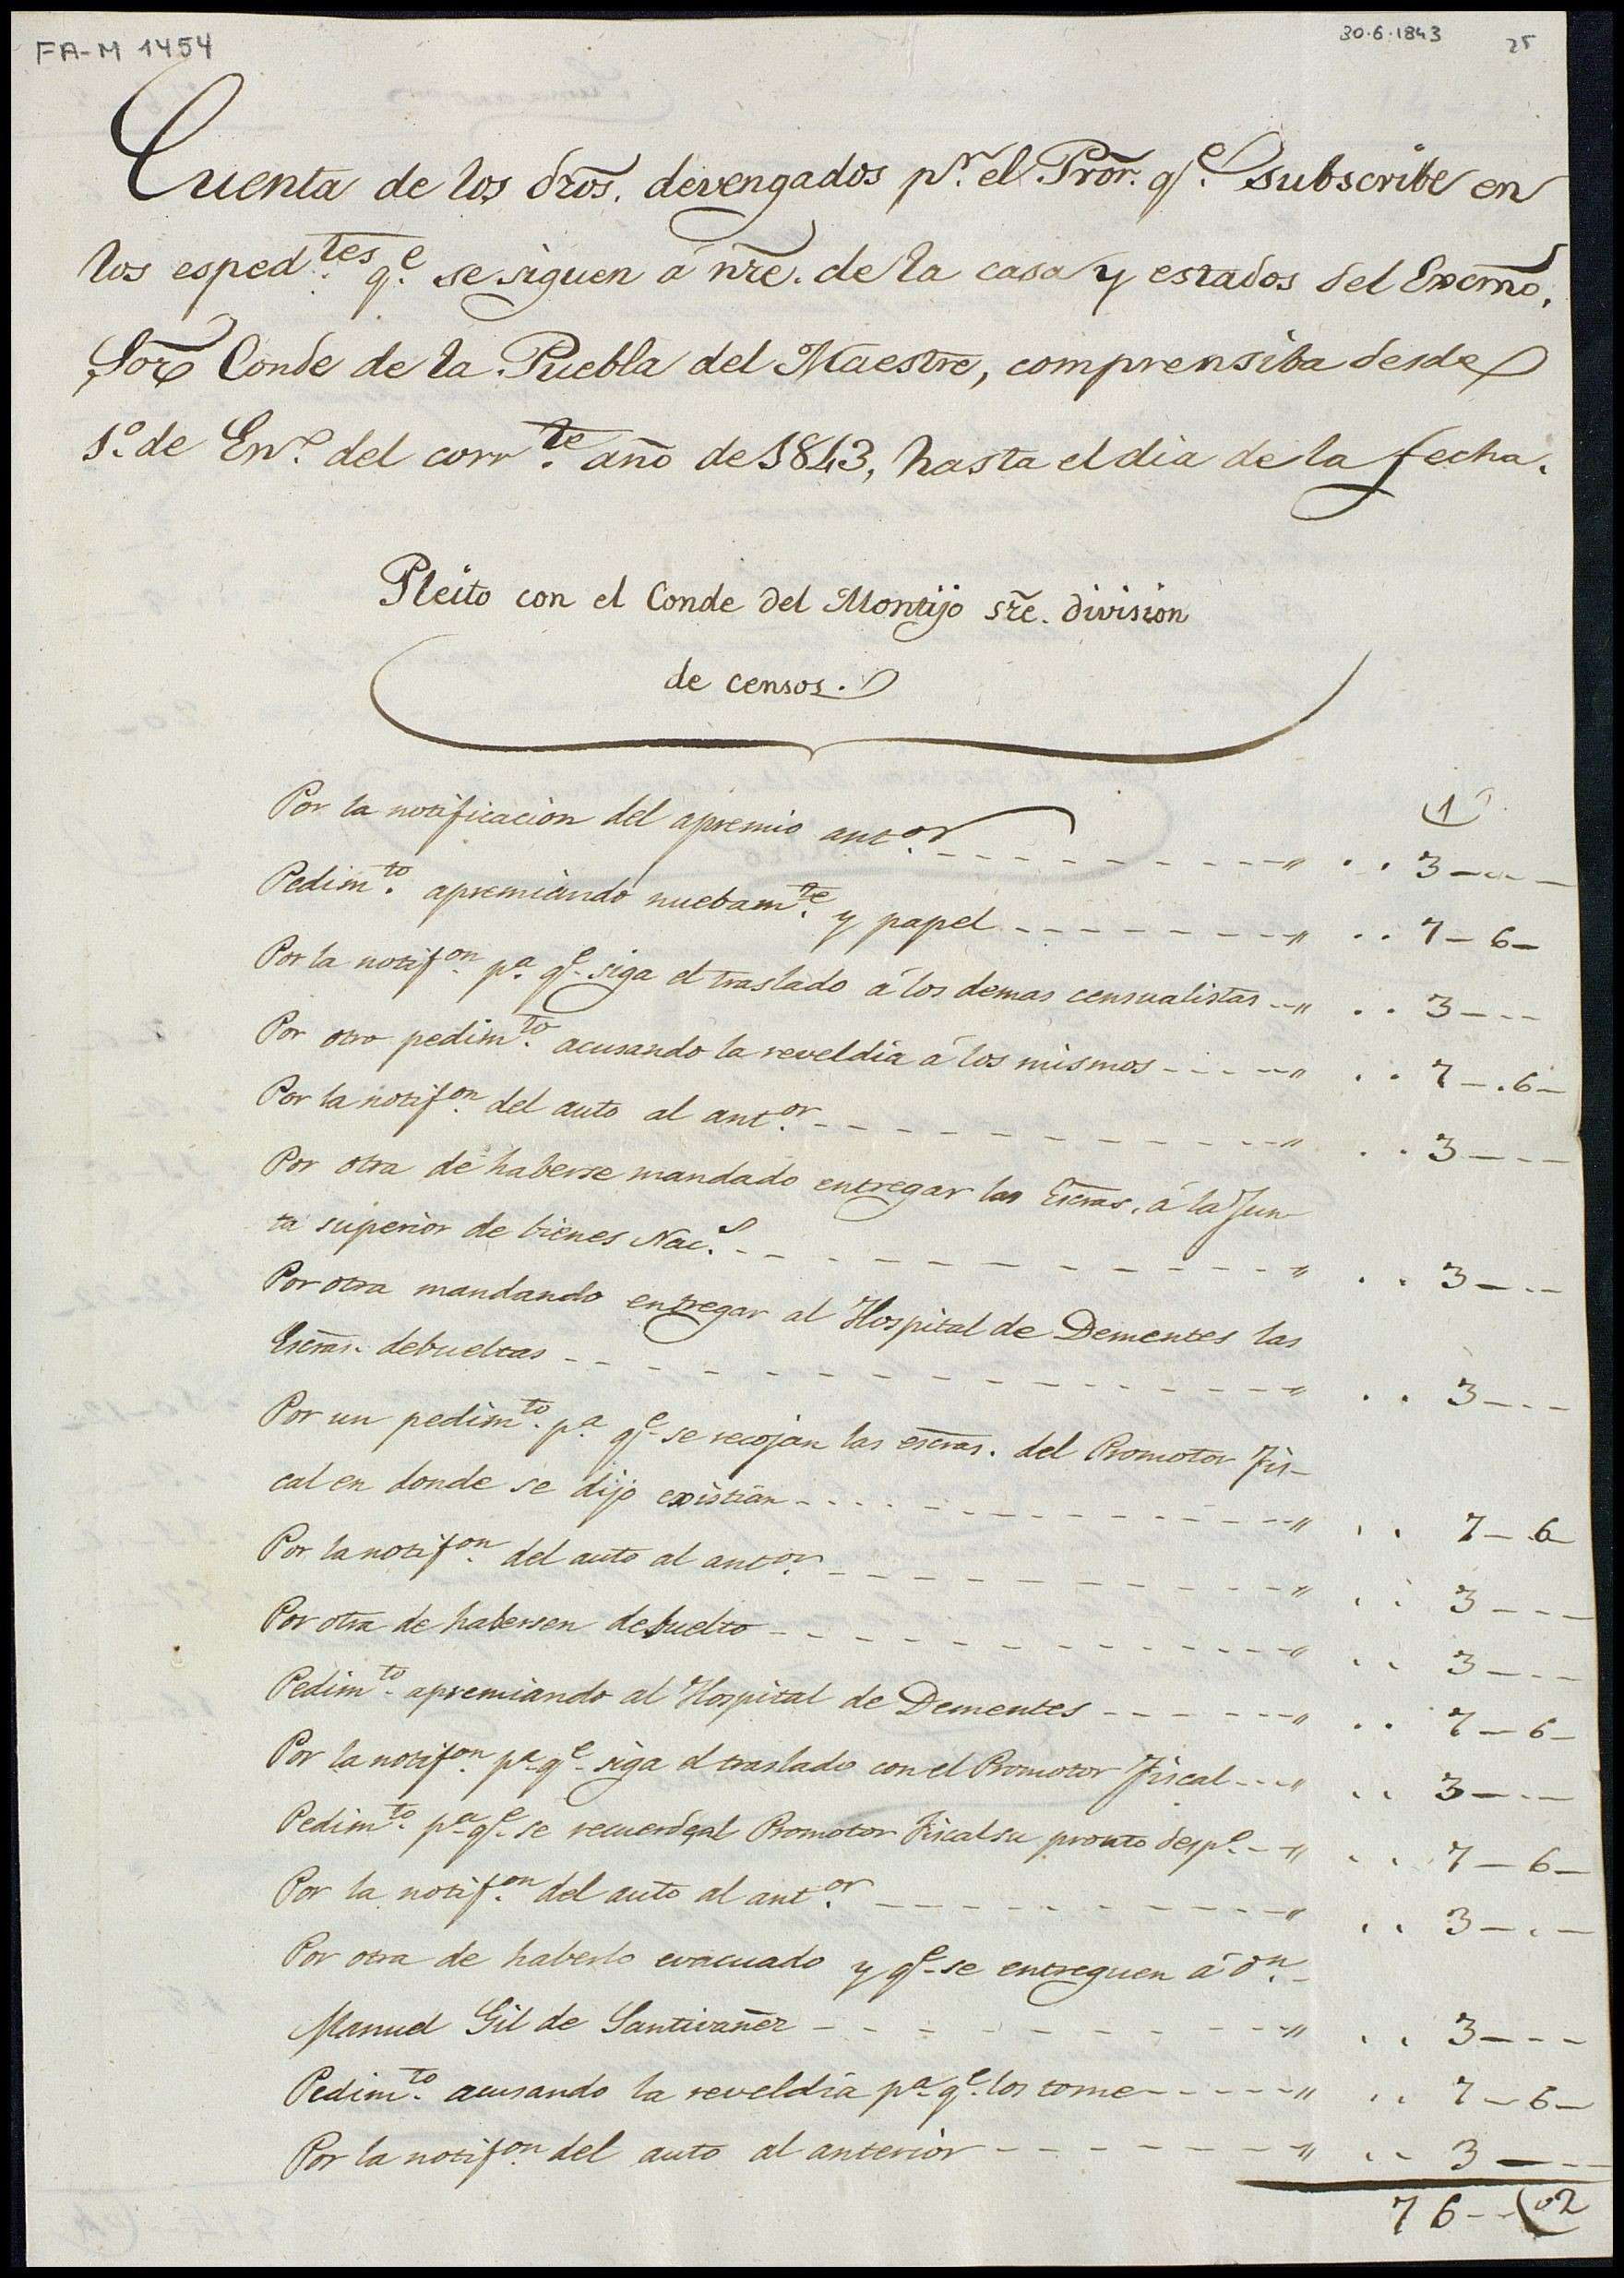 FA-M 1454
30·6·1843
25
Cuenta de los dros. devengados pr. el Pror. qe. subscribe en
los espedtes. qe. se siguen á nre. de la casa y estados del Excmo.
Sor. Conde de la Puebla del Maestre, comprensiba desde
1º. de Eno. del corrte. año de 1843, hasta el dia de la fecha.
Pleito con el Conde del Montijo sre. division
de censos.
1
Por la notificacion del apremio antor. 3
Pedimto. apremiando nuebamte. y papel 7-6
Por la notifon. pa. qe. siga el traslado á los demas censualistas 3
Por otro pedimto. acusando la reveldia á los mismos 7-6
Por la notifon. del auto al antor. 3
Por otra de haberse mandado entregar las Escras. á la Jun
ta superior de bienes Nacs. 3
Por otra mandando entregar al Hospital de Dementes las
Escras. debueltas 3
Por un pedimto. pa. qe. se recojan las escras. del Promotor Fis-
cal en donde se dijo existian 7-6
Por la notifon. del auto al antor. 3
Por otra de habersen debuelto 3
Pedimto. apremiando al Hospital de Dementes 7-6
Por la notifon. pa. qe. siga el traslado con el Promotor Fiscal 3
Pedimto. pa. qe. se recuerde al Promotor Fiscal su pronto despo. 7-6
Por la notifon. del auto al antor. 3
Por otra de haberlo evacuado y qe. se entreguen á Dn.
Manuel Gil de Santivañez 3
Pedimto. acusando la reveldia pa. qe. los tome 7-6
Por la notifon. del auto al anterior 3
76--02